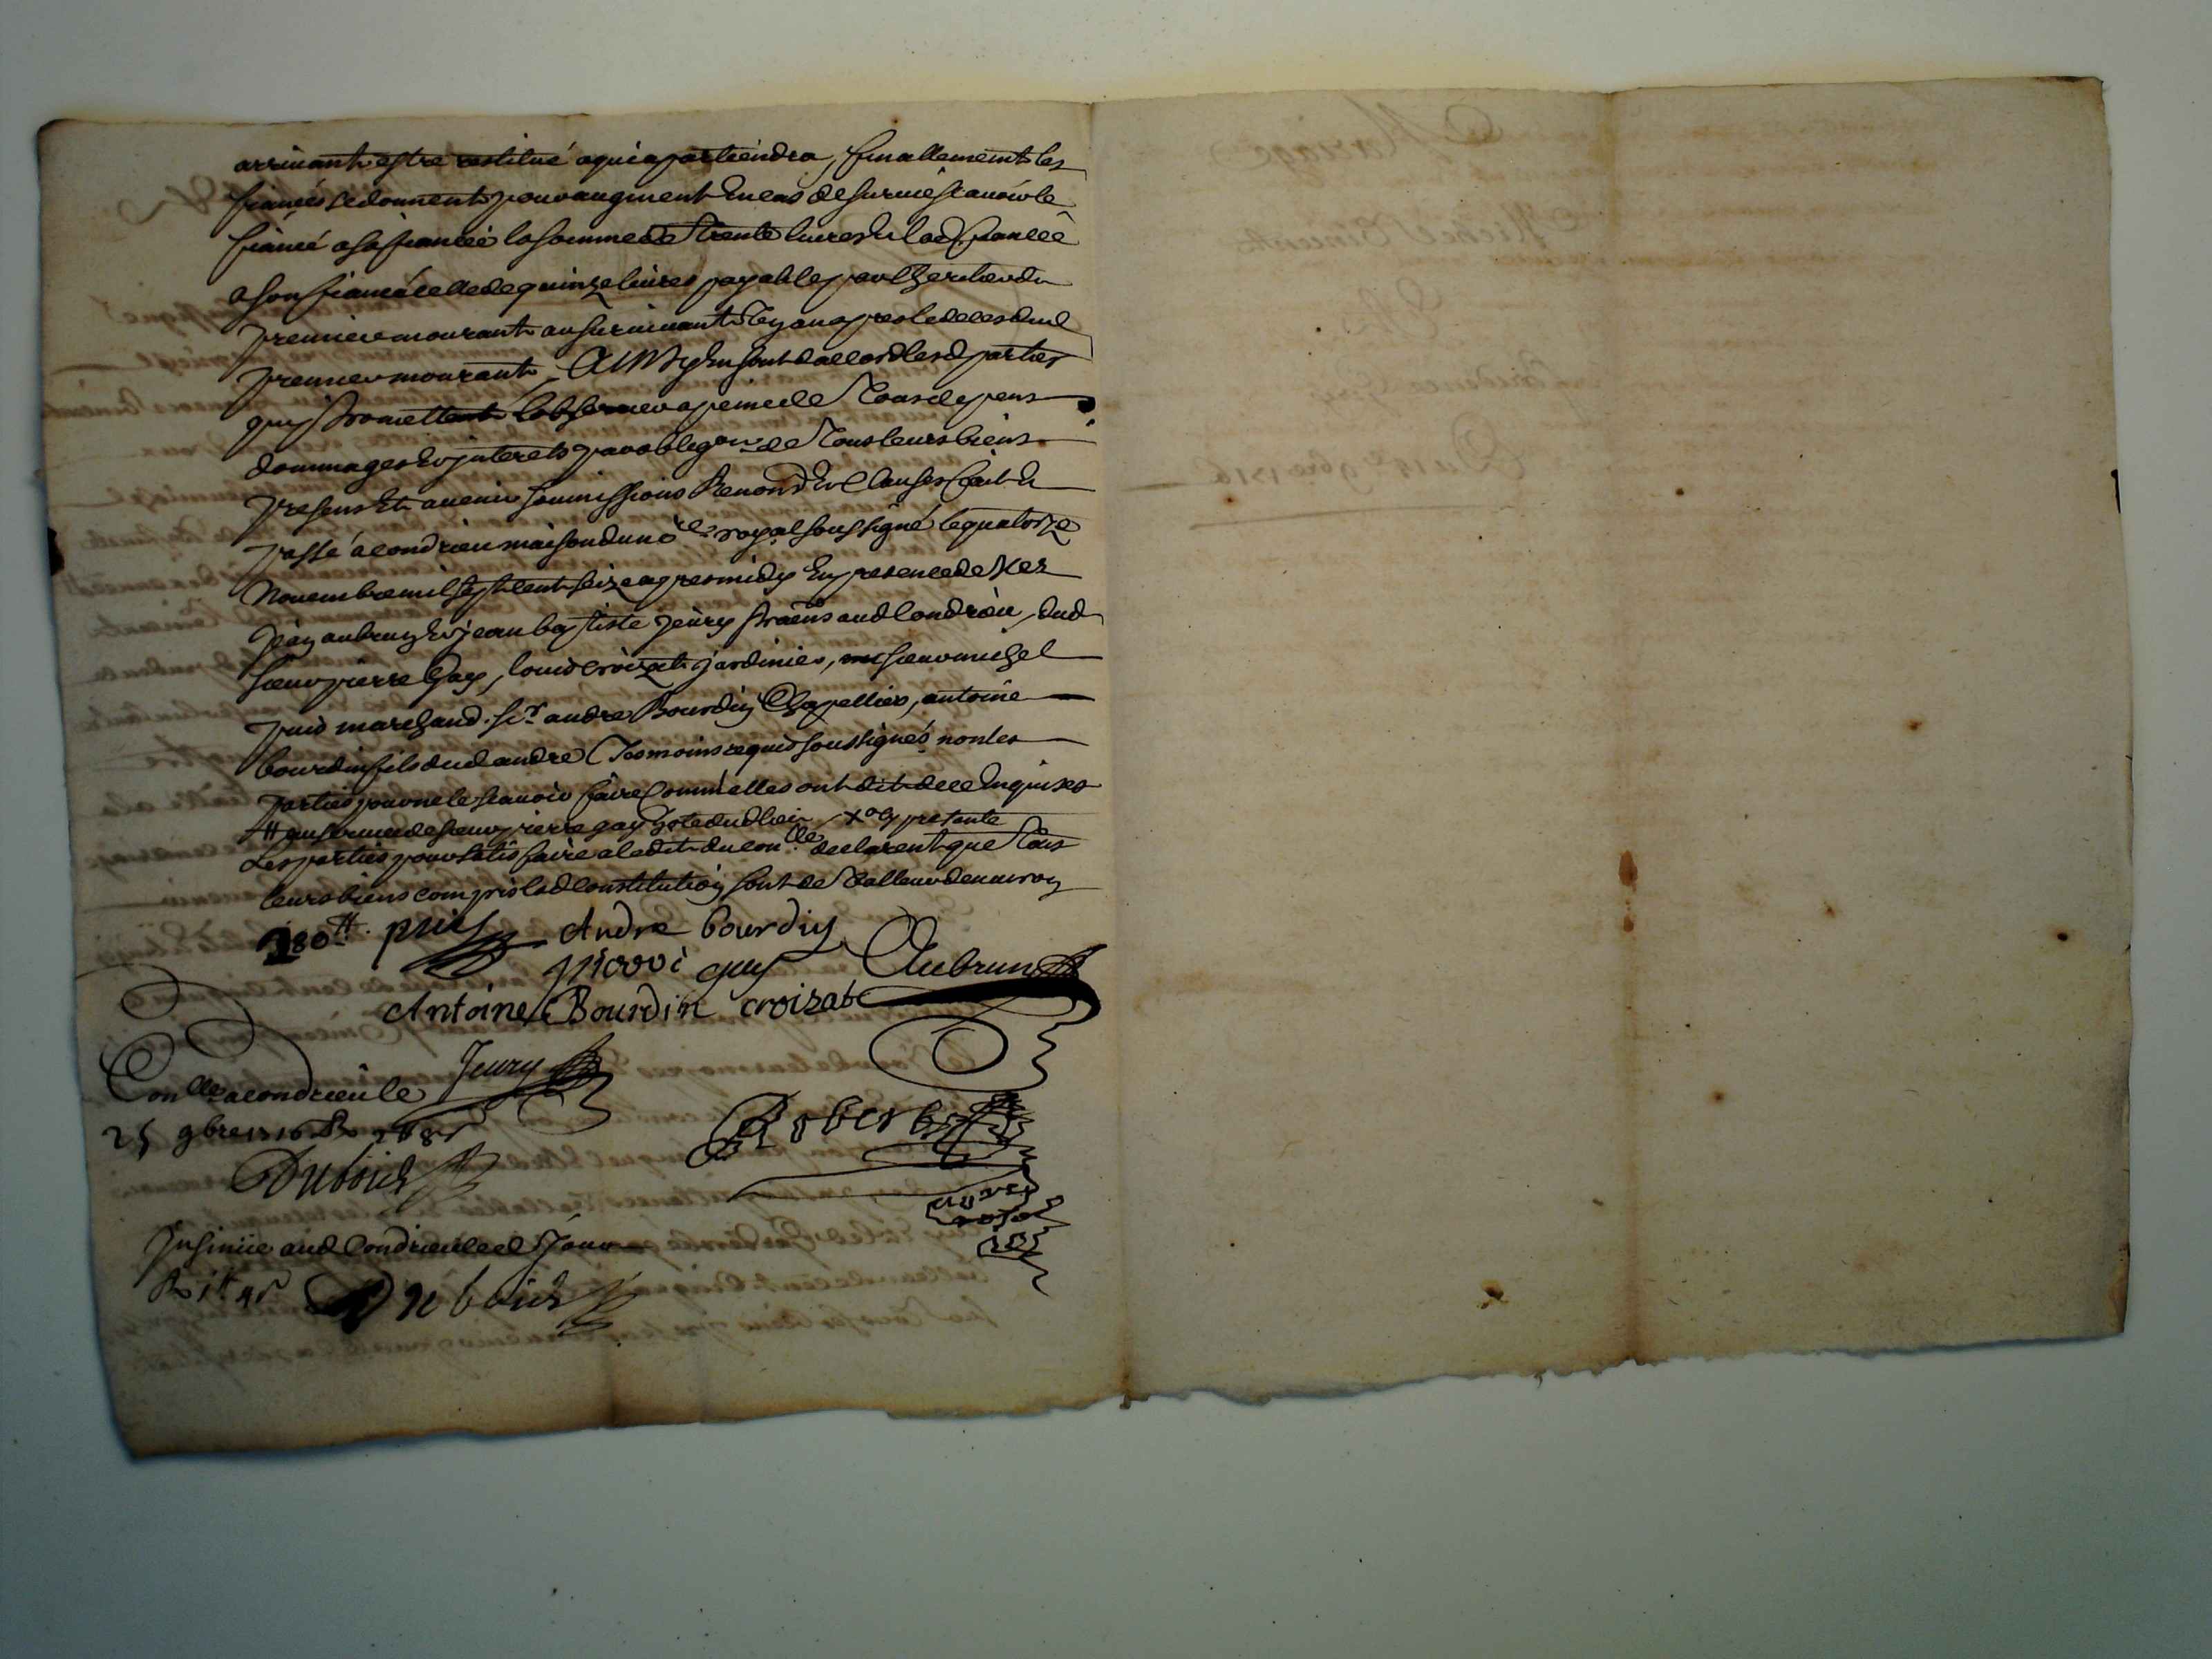 arrivant estre restitué a qui apartiendra, finallement les
fiancés se donnent pour augment en cas de survie scavoir le
fiancé a sa fiancée la somme de trente livres et lad fiancée
a son fiancé celle de quinze livres payable par l'heritier du
premier mourant au survivant un an apres le deces dud
premier mourant, Ainsy en sont d'accord lesd parties
quy promettent l'observer a peine de tous depens
dommages et interets par obligon de tous leurs biens
presens et avenir soumissions Renond et Clauses fait et
passé a condrieu maison du no.re royal soussigné le quatorze
Novembre mil sept cent seize apres midy En presence de Mes
aubrun et jean baptiste jeury praens aud Condrieu, dud
sieur pierre Gay, louis croizat jardinier, sieur michel
puis marchand. sr andre Bourdin Chapellier, antoine
bourdin fils dud andre tesmoins requis soussignés non les
parties pour ne le scavoir faire comm'elles ont dit de ce Enquises
sieur pierre gay hote dud lieu presente
Les parties pour satisfaire a ledit du conlle declarent que tous
leurs biens compris lad Constitution sont de valleur denviron
180tt. puis Andre bourdin
gay Aubrun
Antoine Bourdin croizat
Jeury
Conlle a condrieu le
25 9bre 1716 R
Dubois
Robert
Insinué aud Condrieu led jour
R 1tt
Dubois
Mariage
Michel
Du 14e 9bre 1716